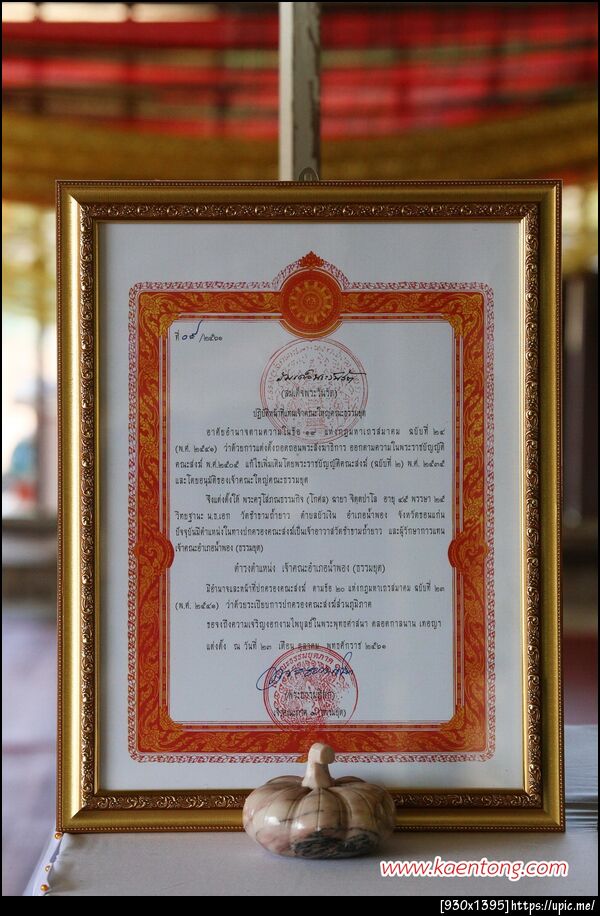 ที่ ๐๙/๒๕๖๑
(สมเด็จพระวันรัต)
ปฏิบัติหน้าที่แทนเจ้าคณะใหญ่คณะธรรมยุต
อาศัยอำนาจตามความในข้อ ๑๙ แห่งกฎมหาเถรสมาคม ฉบับที่ ๒๔
(พ.ศ. ๒๕๔๑) ว่าด้วยการแต่งตั้งถอดถอนพระสังฆาธิการ ออกตามความในพระราชบัญญัติ
คณะสงฆ์ พ.ศ.๒๕๐๕ แก้ไขเพิ่มเติมโดยพระราชบัญญัติคณะสงฆ์ (ฉบับที่ ๒) พ.ศ. ๒๕๓๕
และโดยอนุมัติของเจ้าคณะใหญ่คณะธรรมยุต
จึงแต่งตั้งให้ พระครูโสภณธรรมกิจ (โกศล) ฉายา จิตฺตปาโล อายุ ๔๕ พรรษา ๒๕
วิทยฐานะ น.ธ.เอก วัดป่าชำถ้ำยาว ตำบลบัวเงิน อำเภอน้ำพอง จังหวัดขอนแก่น
ปัจจุบันมีตำแหน่งในทางปกครองคณะสงฆ์เป็นเจ้าอาวาสวัดป่าชำถ้ำยาว และผู้รักษาการแทน
เจ้าคณะอำเภอน้ำพอง (ธรรมยุต)
ดำรงตำแหน่ง เจ้าคณะอำเภอน้ำพอง (ธรรมยุต)
มีอำนาจและหน้าที่ปกครองคณะสงฆ์ ตามข้อ ๒๐ แห่งกฎมหาเถรสมาคม ฉบับที่ ๒๓
(พ.ศ. ๒๕๔๑) ว่าด้วยระเบียบการปกครองคณะสงฆ์ส่วนภูมิภาค
ขอจงถึงความเจริญงอกงามไพบูลย์ในพระพุทธศาสนา ตลอดกาลนาน เทอญฯ
แต่งตั้ง ณ วันที่ ๒๓ เดือน ตุลาคม พุทธศักราช ๒๕๖๑
www.kaentong.com
[930x1395]https://upic.me/